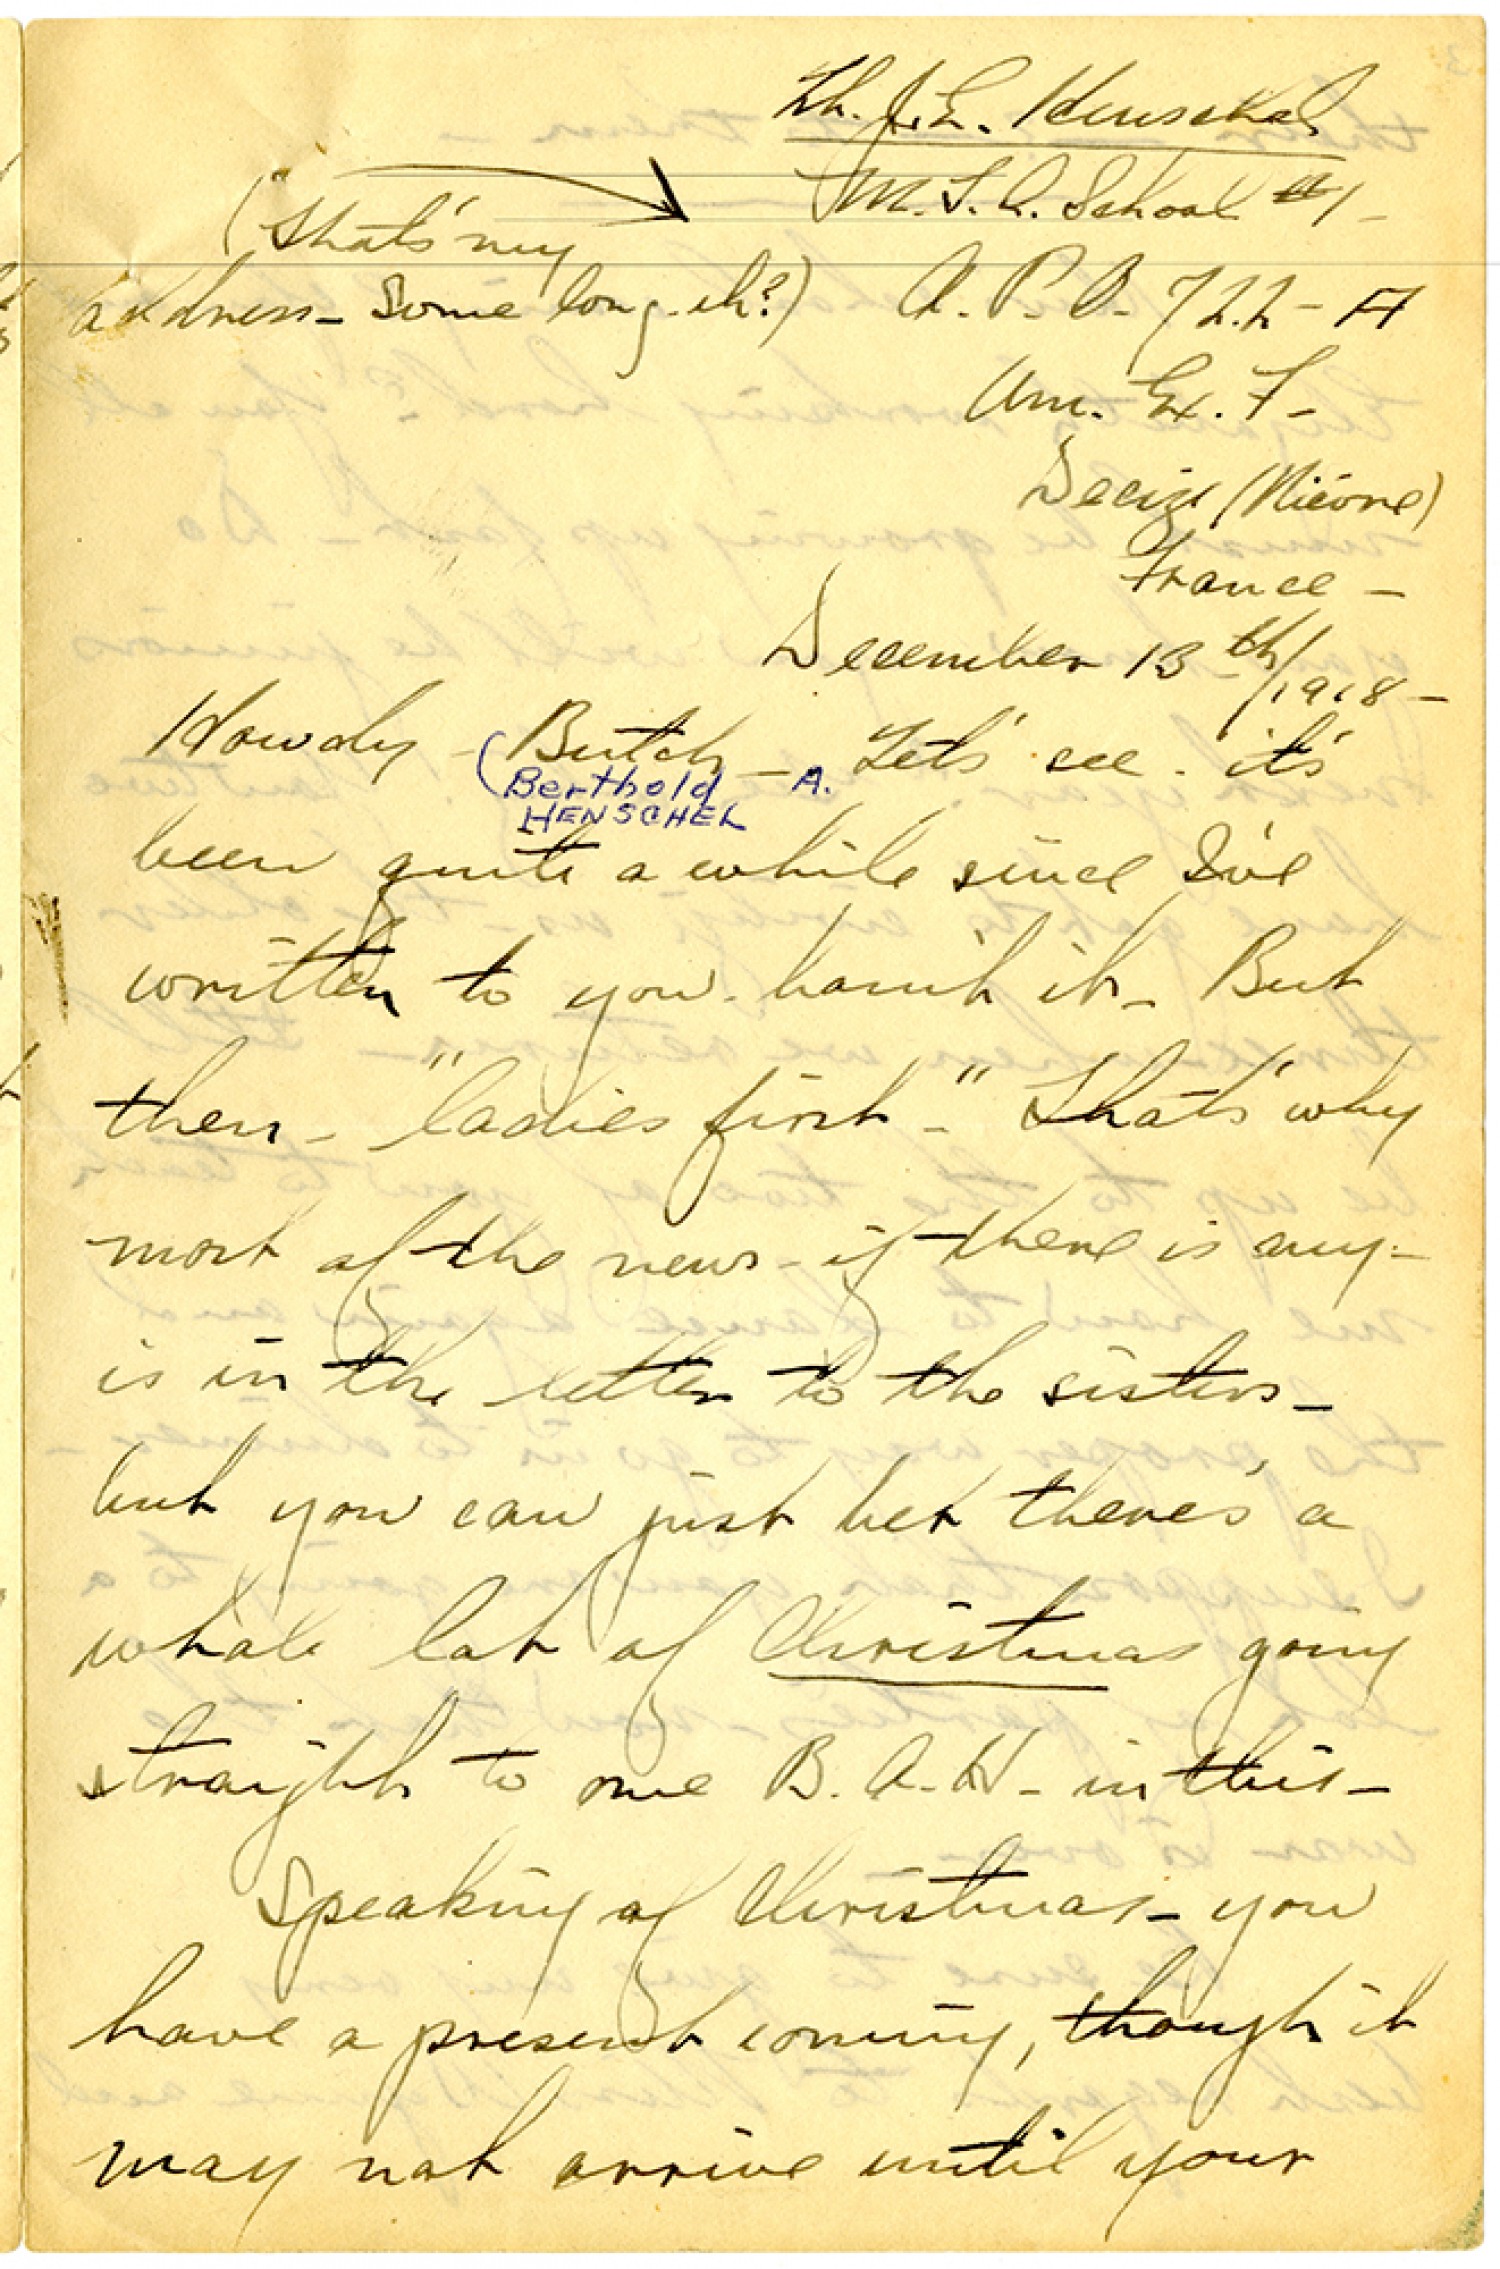 Lt. J. E. Henschel
M. T. C. School #1 -
("That's my
address - Some long - eh?) A. P. O. 722 - A
Am. Ex. F -
Decize (Nièvre)
France -
December 13th/1918 -
Howdy - Butch - Let's see - it's
(Berthold A.
HENSCHEL
been quite a while since I've
written to you - hain't it - But
then - "ladies first -" That's why
most of the news - if there is any -
is in the letter to the sisters -
but you can just bet there's a
whole lot of Christmas going
straight to one B. A. H - in this -
Speaking of Christmas - you
have a present coming, though it
may not arrive until your